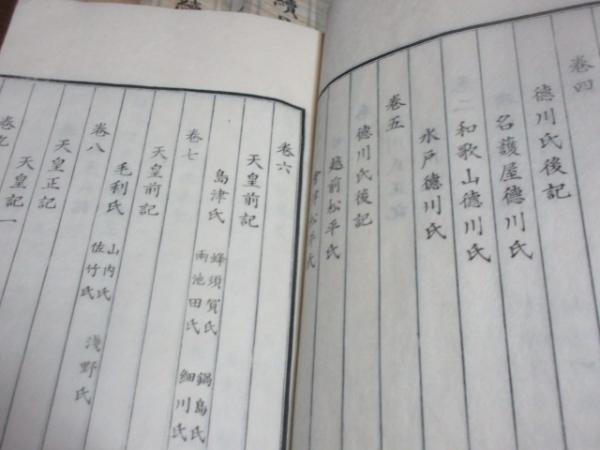 卷四
德川氏後記
名護屋德川氏
和歌山德川氏
水戶德川氏
卷五
德川氏後記
越前松平氏
松平氏
卷六
天皇前記
島津氏 蜂須賀氏 鍋島氏
兩池田氏 細川氏
卷七
天皇前記
毛利氏 山內氏 淺野氏
佐竹氏
卷八
天皇正記
卷九
天皇記一